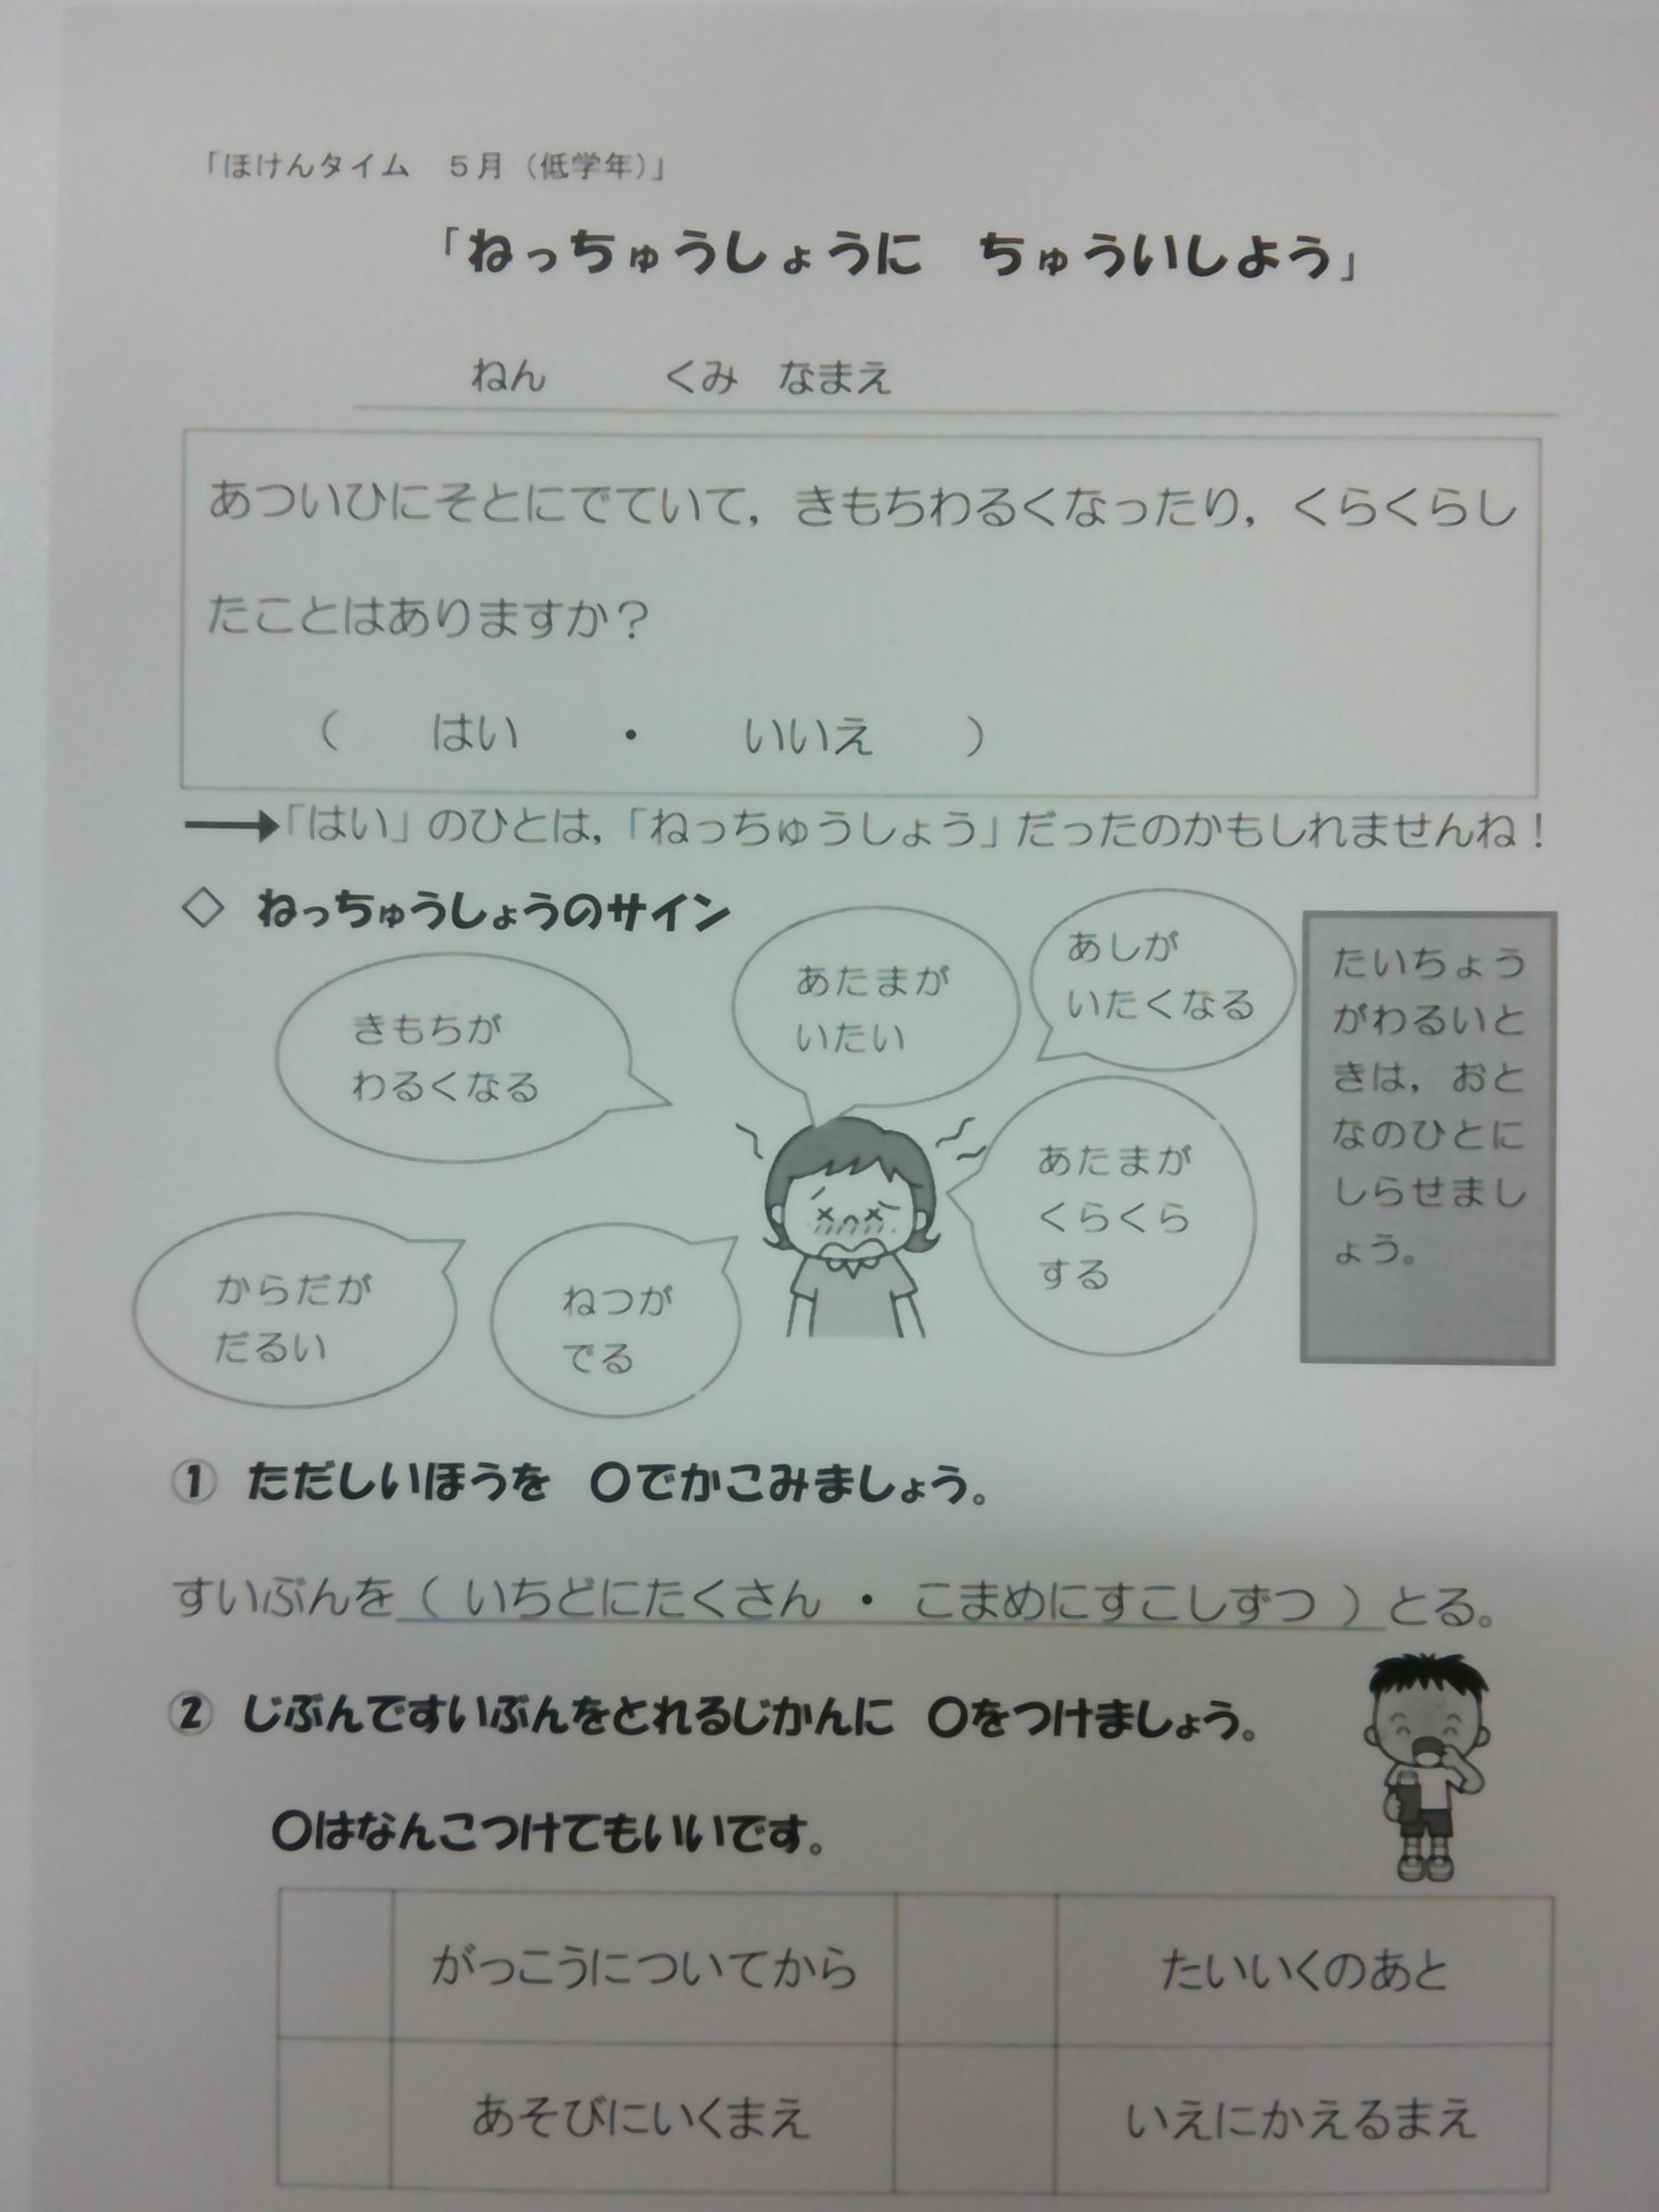 「ほけんタイム　５月（低学年）」
「ねっちゅうしょうに　ちゅういしよう」
ねん　くみ　なまえ
あついひにそとにでていて，きもちわるくなったり，くらくらし
たことはありますか？
（　はい　・　いいえ　）
→「はい」のひとは，「ねっちゅうしょう」だったのかもしれませんね！
◇　ねっちゅうしょうのサイン
きもちが
わるくなる
あたまが
いたい
あしが
いたくなる
たいちょう
がわるいと
きは，おと
なのひとに
しらせまし
ょう。
あたまが
くらくら
する
からだが
だるい
ねつが
でる
①　ただしいほうを　〇でかこみましょう。
すいぶんを（いちどにたくさん　・　こまめにすこしずつ）とる。
②　じぶんですいぶんをとれるじかんに　〇をつけましょう。
〇はなんこつけてもいいです。
がっこうについてから
たいいくのあと
あそびにいくまえ
いえにかえるまえ